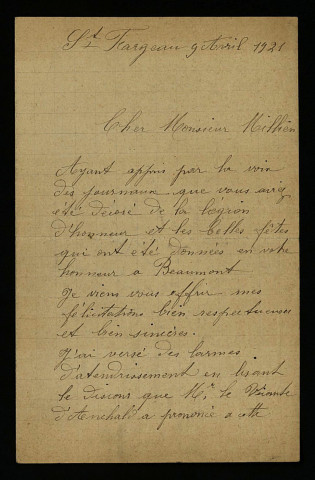 St Fargeau 9 Avril 1921
Cher Monsieur Millien
Ayant appris par la voix
des journaux que vous aviez
été décoré de la légion
d'honneur et les belles fêtes
qui ont été données en votre
honneur a Beaumont
Je viens vous offrir mes
félicitations bien respectueuses
et bien sincères.
J'ai versé des larmes
d'atendrissement en lisant
le discours que Mr le Vicomte
d'Anchald a prononcé a